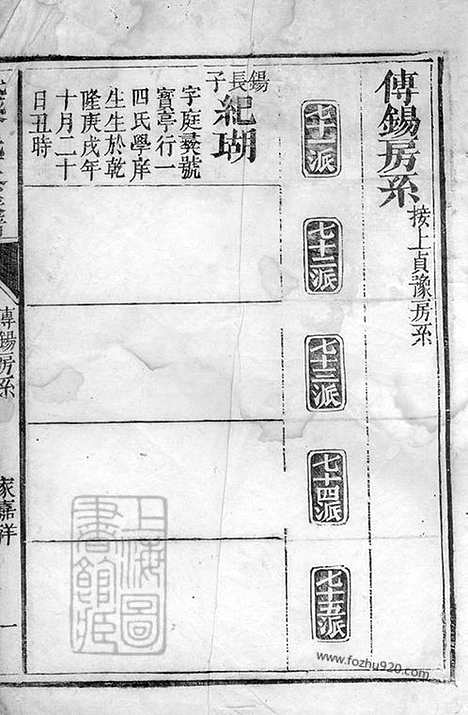 傳錫房系
接上貞豫房系
七十一派
七十二派
七十三派
七十四派
七十五派
錫長子
紀瑚
字庭彝號
寶亭行一
四氏學庠
生生於乾
隆庚戌年
十月二十
日丑時
傳錫房系
家嘉祥
一
上海圖
書館藏
www.fozhu920.com